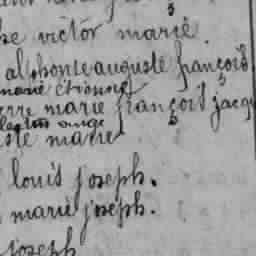 victor marie
alphonse auguste françois
marie étienne
marie françois jacq
ange
marie
louis joseph.
marie joseph.
joseph